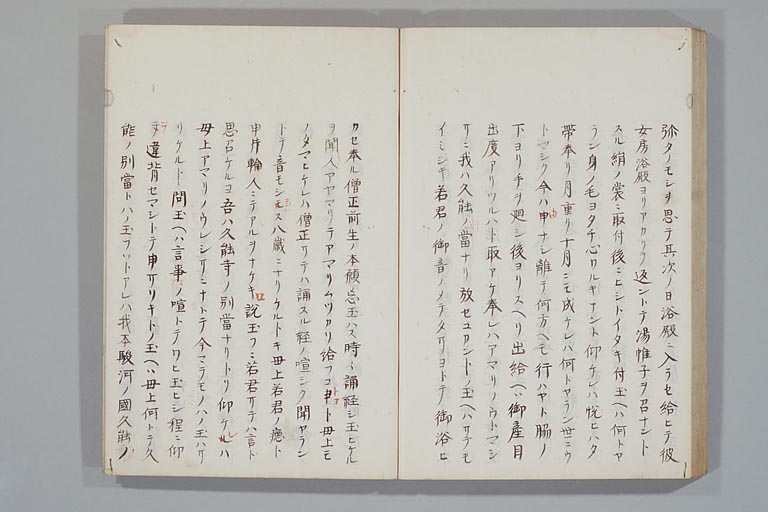 弥タノモシク思テ其次ノ日浴殿ニ入ラセ給ヒテ彼
女房浴殿ヨリアカリ玉ヒ返ントテ湯帷子ヲ召ナント
スル絹ノ裳ニ取付後ニヒシトイタキ付玉ヘハ何トヤ
ラン身ノ毛ヨタチ心ワルキナント仰ケレハ悦ヒハタ
帯奉リ月重リ十月ニモ成ケレハ何トヤラン世ニウ
トマシク今ハ申ナシ離テ何方ヘモ行ハヤト腸ノ
下ヨリ手ヲ廻シ後ヨリスヘリ出給ヘハ御産目
出度アリツルハト取アケ奉レハアマリノウトマシ
サニ我ハ久能ノ當ナリ放セユカントノ玉ヘハサテモ
イミシキ若君ノ御音ノメテタサヨトテ御浴ヒ
カセ奉ル僧正前生ノ本願忘玉ハス時々誦経シ玉ヒケル
ヲ聞人アヤマリテアマリムツカリ給フコ井ト母上モ
ノタマヒケレハ僧正サテハ誦スル経ノ喧シク聞ヤラン
トテ音モシ玉ス八歳ニナリケルトキ母上若君ノ癒ト
申片輪人ニテアルヲナケキ口説玉フニ若君サテハ言ト
思召ケルヨ吾ハ久能寺ノ別當ナリトソ仰ケレハ
母上アマリノウレシサニナトテ今マテモノハノ玉ハサ
リケルト問玉ヘハ言事ノ喧トテワヒ玉ヒシ程ニ仰
ヲ違背セマシトテ申サリキトノ玉ヘハ母上何トテ久
能ノ別當トハノ玉フソトアレハ我本駿河ノ國久能ノ